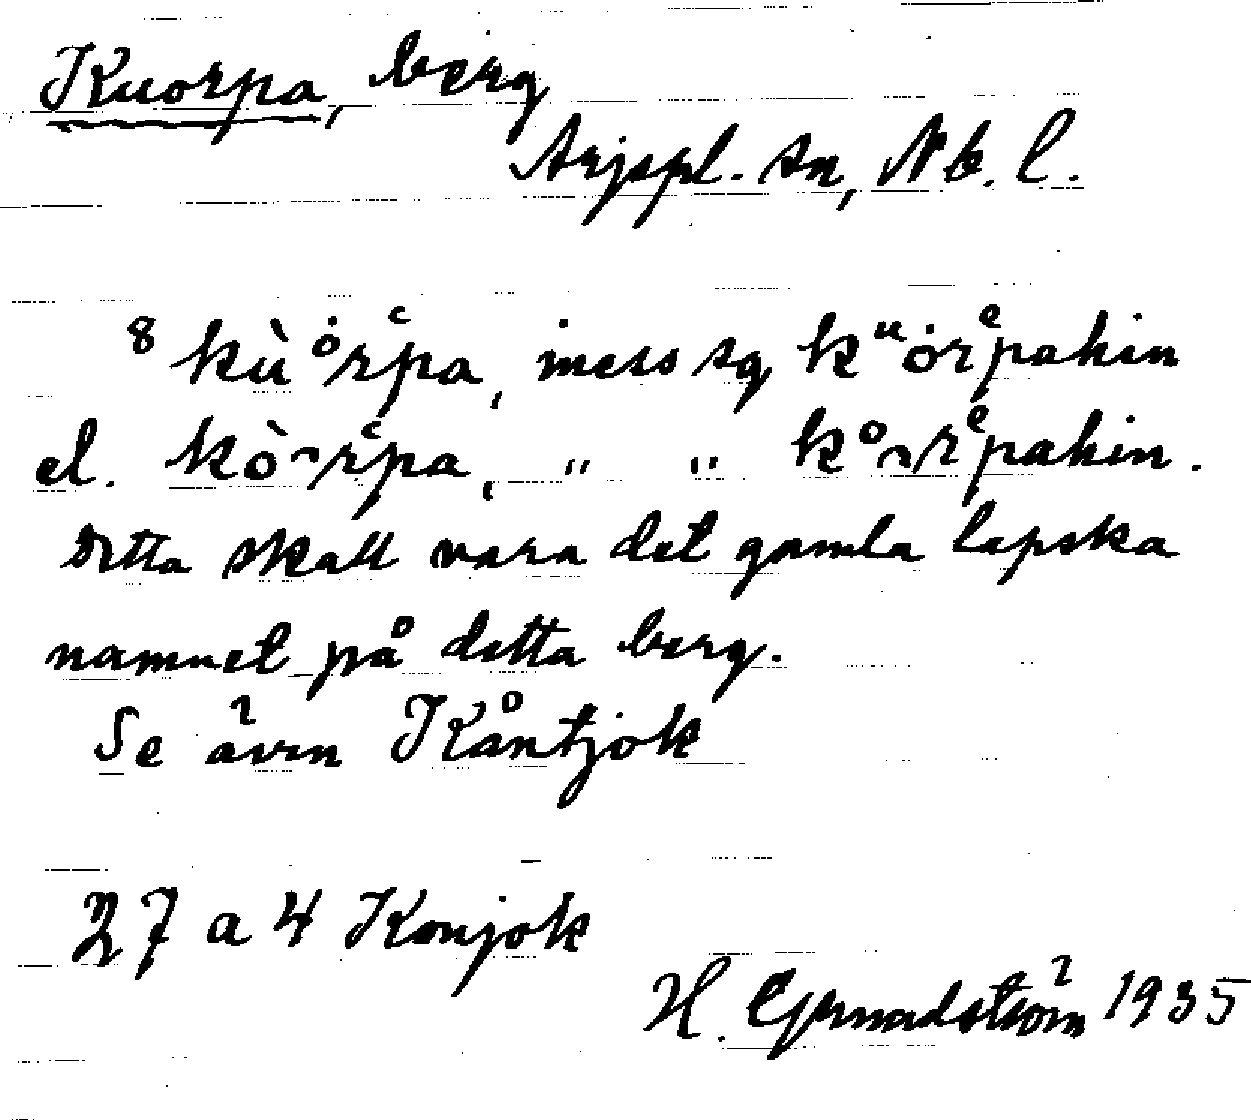 Kuorpa, berg
Arjepl. sn, Nb. l.
8 kùȯrpa, iness sg kᵘȯrpahin
el. kò̀rpa, " " kårpahin.
Detta skall vara det gamla lapska
namnet på detta berg.
Se även Kåntjok
27 a 4 Konjok
H. Grundström 1935